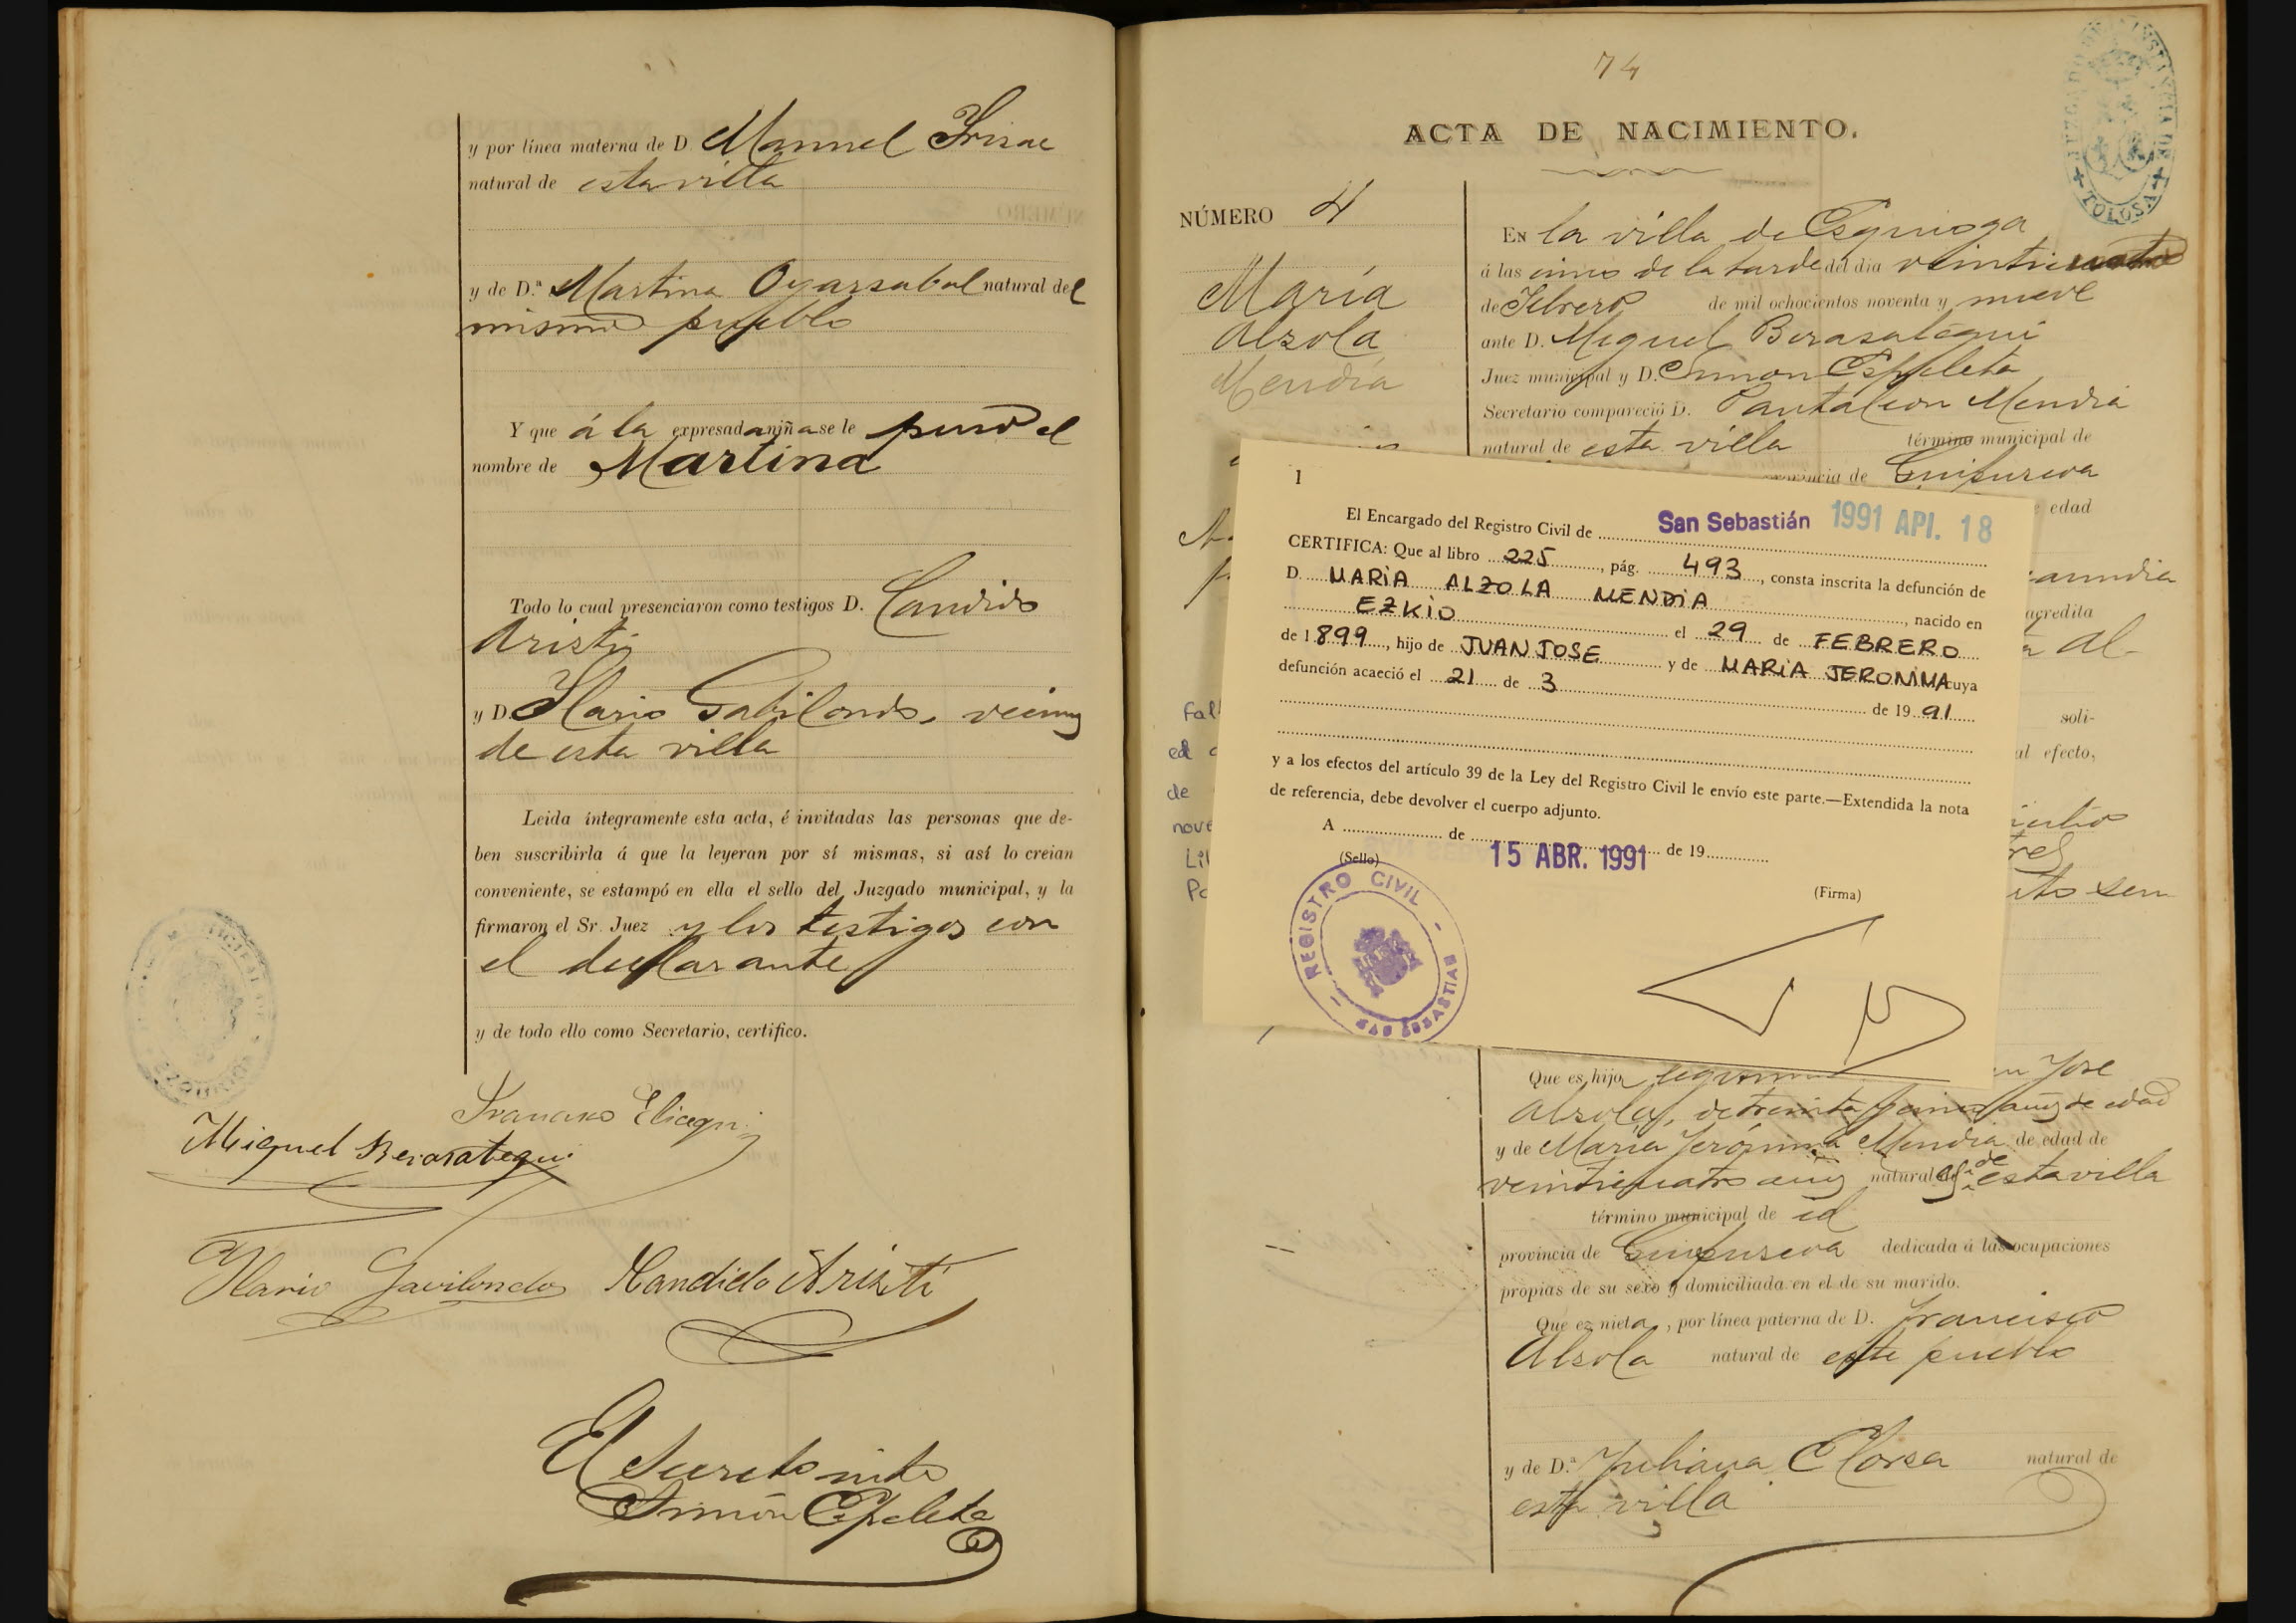 y por línea materna de D. Manuel Irizar
natural de esta villa
y de D.ª Martina Oyarzabal natural del
mismo pueblo
Y que á la expresada niña se le puso el
nombre de Martina
Todo lo cual presenciaron como testigos D. Candido
Aristi
y D. Ilario Gabilondo, vecinos
de esta villa
Leida íntegramente esta acta, é invitadas las personas que de-
ben suscribirla á que la leyeran por sí mismas, si así lo creian
conveniente, se estampó en ella el sello del Juzgado municipal, y la
firmaron el Sr. Juez y los testigos con
el declarante
y de todo ello como Secretario, certifico.
Elicegui
Miguel Berasategui
Ilario Gavilondo Kandido Aristi
El Secretario
Simón Espeleta
74
ACTA DE NACIMIENTO.
TOLOSA
NÚMERO 4
María
Alzola
Mendia
En la villa de Ezquioga
á las cinco de la tarde del dia
de Febrero de mil ochocientos noventa y nueve
ante D. Miguel Berasategui
Juez municipal y D. Simon Espeleta
Secretario compareció D. Pantaleon Mendia
natural de esta villa término municipal de
provincia de Guipuzcoa
edad
acredita
Al-
soli-
al efecto,
I
El Encargado del Registro Civil de San Sebastián 1991 API. 18
CERTIFICA: Que al libro 225, pág. 493, consta inscrita la defunción de
D. MARIA ALZOLA MENDIA, nacido en
EZKIO el 29 de FEBRERO
de 1899, hijo de JUAN JOSE y de MARIA JERONIMA cuya
defunción acaeció el 21 de 3 de 1991
y a los efectos del artículo 39 de la Ley del Registro Civil le envío este parte.—Extendida la nota
de referencia, debe devolver el cuerpo adjunto.
A de de 19
15 ABR. 1991
(Sello)
(Firma)
REGISTRO CIVIL
SAN SEBASTIAN
Que es hija José
Alzola, de treinta años de edad
y de María Jerónima Mendia de edad de
veinticuatro años natural de esta villa
término municipal de id
provincia de Guipuzcoa dedicada á las ocupaciones
propias de su sexo y domiciliada en el de su marido.
Que es nieta, por línea paterna de D. Francisco
Alzola natural de este pueblo
y de D.ª Juliana Elorza natural de
esta villa